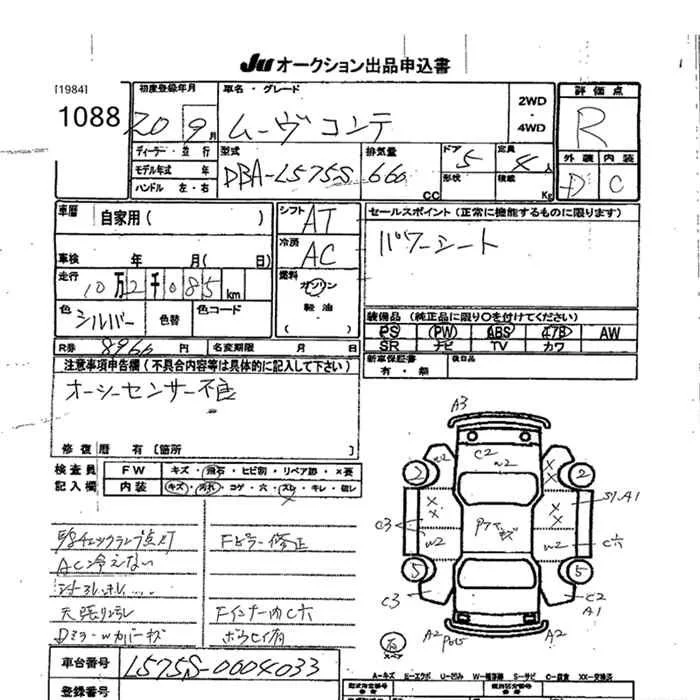 Ju オークション出品申込書
[1984]
1088
初度登録年月
20 9月
車名・グレード
ムーヴコンテ
2WD
・
4WD
評価点
R
外装 内装
D C
ディーラー・並行
モデル年式 年
ハンドル 左・右
型式
DBA-L575S
排気量
660
CC
ドア
5
形状
定員
4人
積載
Kg
車歴
自家用( )
車検 年 月( 日)
走行
10万2千085km
色
シルバー
色替
色コード
R券 8960円
名変期限 月 日
シフト AT
冷房 AC
燃料
ガソリン
・
軽油
( )
セールスポイント(正常に機能するものに限ります)
パワーシート
装備品(純正品に限り○を付けてください)
PS PW ABS エアB AW
SR ナビ TV カワ
新車保証書
有・無
後日品
注意事項申告欄(不具合内容等は具体的に記入して下さい)
オーシーセンサー不良
修復歴 有[箇所 ]
検査員
記入欄
FW キズ・飛石・ヒビ割・リペア跡・×要
内装 キズ・汚れ・コゲ・穴・スレ・キレ・欠レ
チェックランプ点灯
AC冷えない
天張り
Dミラーwカバーキズ
Fピラー修正
Fインナー内C穴
車台番号 L575S-0004033
登録番号
A3
C2
w2
2
2
S1.A1
C3
w2
w2
C穴
5
5
C3
C2
A1
A2
A2
A-キズ E-エクボ U-凹み W-補修跡 S-サビ C-腐食 XX-交換済